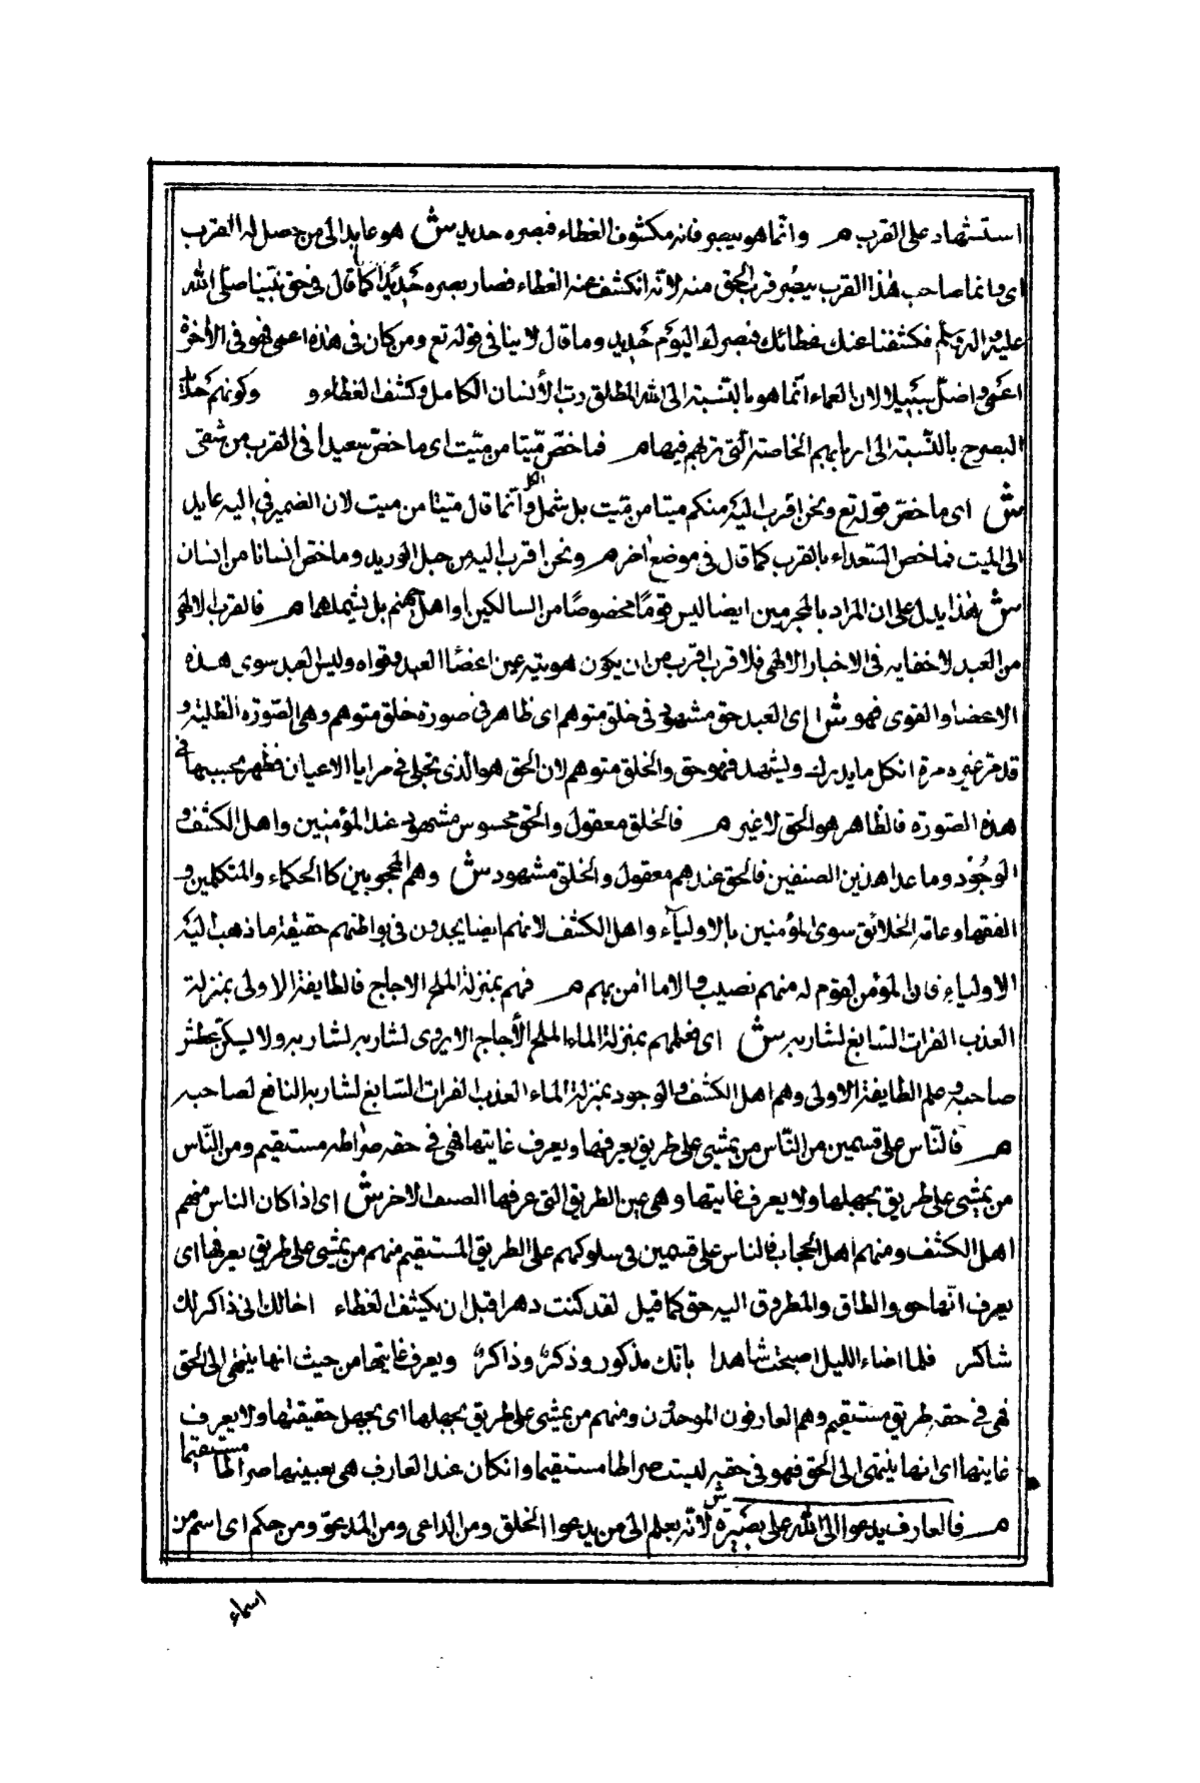 استشهاد على القرب م وانما هو يبصر فانه مكشوف الغطاء فبصره حديد ش هو عايد الى من حصل له القرب
اى وانما صاحب هذا القرب يبصُر قرب الحق منه لانه انكشف عنه الغطاء فصار بصره حَديدًا كما قال فى حق نبيّنا صلّى الله
عليه وآله وسلّم فكشفنا عنك غطائك فبصرك اليوَم حَديد وما قال لا ينافى قوله تع ومن كان فى هذه اعمى فهو فى الاخرة
اعمَى واضلّ سَبيلا لان العماء انّما هو بالنّسبته الى الله المطلق رب الأنسان الكامل وكشف الغطاء و وكونهم حَادّ
البصرح بالنّسبته الى اربابهم الخاصته الّتى تربهم فيها م فما خصّ ميّتا من ميّت اى ما خصّ سعيدا فى القرب من شقى
ش اى ما خصّ قوله تع ونحن اقرب اليَه منكم ميتا من ميّت بل شمل الكل وانّما قال ميّتا من ميت لان الضمير فى اليه عايد
الى الميت فما خص السّعداء بالقرب كما قال فى موضع اخر م ونحن اقرب اليه من حبل الوريد وما خصّ انسانا من انسان
ش هذا يدل على ان المراد بالمجرمين ايضا ليس قومًا مخصوصًا من السالكين او اهل جهنم بل يشملهما م فالقرب الالهى
من العبد لا خفاء به فى الاخبار الالهى فلا قرب اقرب من ان يكون هويته عين اعضَاء العبد وقواه وليس العبد سوى هذه
الاعضاء والقوى فهو ش اى العبد حق مشهود فى خلق متوهم اى ظاهر فى صورة خلق متوهم وهى الصّورة الظلية و
قد مرّ غير مرة ان كل ما يدرك ويشهد فهو حق والخلق متوهم لان الحق هو الذى تجلى فى مرايا الاعيان فظهر بحسبها فى
هذه الصّورة فالظاهر هو الحق لا غير م فالخلق معقول والحق محسوس مشهود عند المؤمنيين واهل الكشف و
الوجُوْد وما عدا هذين الصنفين فالحق عندهم معقول والخلق مشهود ش وهم المحجوبين كالحكماء والمتكلمين و
الفقهاء وعامّة الخلائق سوى المؤمنيين بالاولياء واهل الكشف لانهم ايضا يجدون فى بواطنهم حقيقة ما ذهب اليَه
الاولياءِ فان المؤمن لقوم له منهم نصيب والا ما امن بهم م فهم بمنزلة الملح الاجاج فالطايفة الاولى بمنزلة
العذب الفرات السّايغ لشاربه ش اى فعلمهم بمنزلة الماء الملح الأجاج لا يروى لشاربه لشاربه ولا يسكن عطش
صاحبه وعلم الطايفة الاولى وهم اهل الكشف والوجود بمنزلة الماء العذب الفرات السّايغ لشاربه النافع لصاحبه
م فالنّاس على قسمين من النّاس من يمشى على طريق يعرفها ويعرف غايتها فهى فى حقه صراط مستقيم ومن النّاس
من يمشى على طريق يجهلها ولا يعرف غايتها وهى عين الطريق التى عرفها الصنف الاخر ش اى اذا كان الناس منهم
اهل الكشف ومنهم اهل الحجاب فالناس على قسمين فى سلوكهم على الطريق المستقيم منهم من يمشى على طريق يعرفها اى
يعرف انّها حق والطاق والمطروق اليه حق كما قيل لقد كنت دهرا قبل ان يكشف الغطاء اخالك انى ذاكر لك
شاكر فلما اضاء الليل اصبحت شاهدا بانّك مذكور وذكرٌ وذاكرٌ ويعرف غايتها من حيث انها ينتهى الى الحق
فهى فى حقه طريق مستقيم وهم العارفون الموحدّون ومنهم من يمشى على طريق يجهلها اى يجهل حقيقتها ولا يعرف
غايتها اى انها ينتهى الى الحق فهو فى حقه ليست صراطا مستقيما وان كان عند العارف هى بعينها صراطا مستقيما
م فالعارف يدعوا الى الله على بصَيرة ش لانّه يعلم الى من يدعوا الخلق ومن الداعى ومن المدعوّ ومن حكم اى اسم من
اسماء